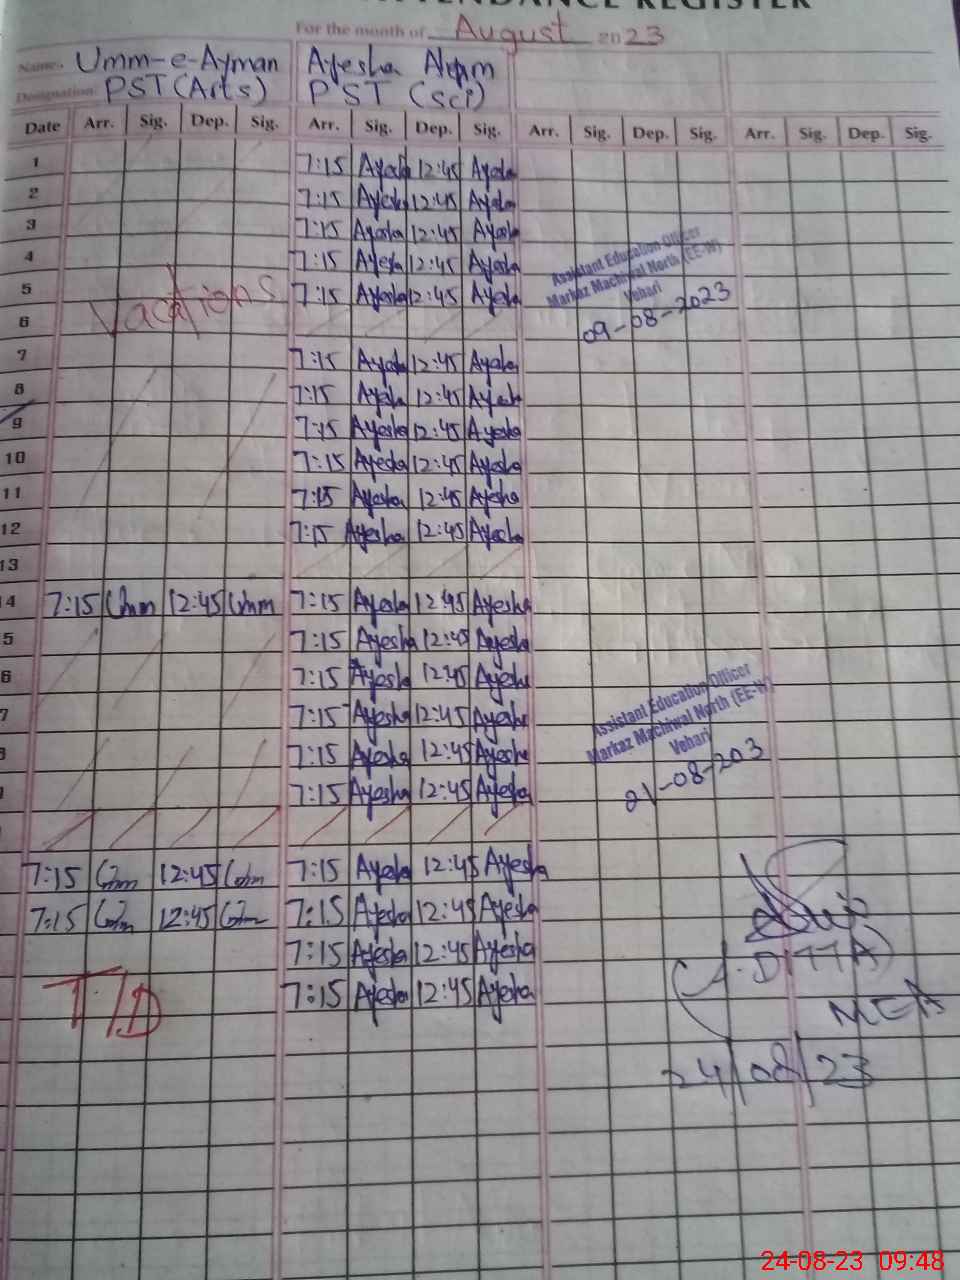 ATTENDANCE REGISTER
For the month of August 2023
Name. Umm-e-Ayman Ayesha
Designation PST (Arts) PST (sci)
Date Arr. Sig. Dep. Sig. Arr. Sig. Dep. Sig. Arr. Sig. Dep. Sig. Arr. Sig. Dep. Sig.
1 7:15 Ayesha 12:45 Ayesha
2 7:15 Ayesha 12:45 Ayesha
3 7:15 Ayesha 12:45 Ayesha
4 7:15 Ayesha 12:45 Ayesha
5 7:15 Ayesha 12:45 Ayesha
Vacations
Assistant Education Officer
Markaz Machiwal North (EE-W)
Vehari
09-08-2023
6
7 7:15 Ayesha 12:45 Ayesha
8 7:15 Ayesha 12:45 Ayesha
9 7:15 Ayesha 12:45 Ayesha
10 7:15 Ayesha 12:45 Ayesha
11 7:15 Ayesha 12:45 Ayesha
12 7:15 Ayesha 12:45 Ayesha
13
14 7:15 Umm 12:45 Umm 7:15 Ayesha 12:45 Ayesha
5 7:15 Ayesha 12:45 Ayesha
6 7:15 Ayesha 12:45 Ayesha
7 7:15 Ayesha 12:45 Ayesha
7:15 Ayesha 12:45 Ayesha
7:15 Ayesha 12:45 Ayesha
Assistant Education Officer
Markaz Machiwal North (EE-W)
Vehari
21-08-203
7:15 Umm 12:45 Umm 7:15 Ayesha 12:45 Ayesha
7:15 Umm 12:45 Umm 7:15 Ayesha 12:45 Ayesha
7:15 Ayesha 12:45 Ayesha
T/D 7:15 Ayesha 12:45 Ayesha
(A. DITTA)
MEA
24/08/23
24-08-23 09:48